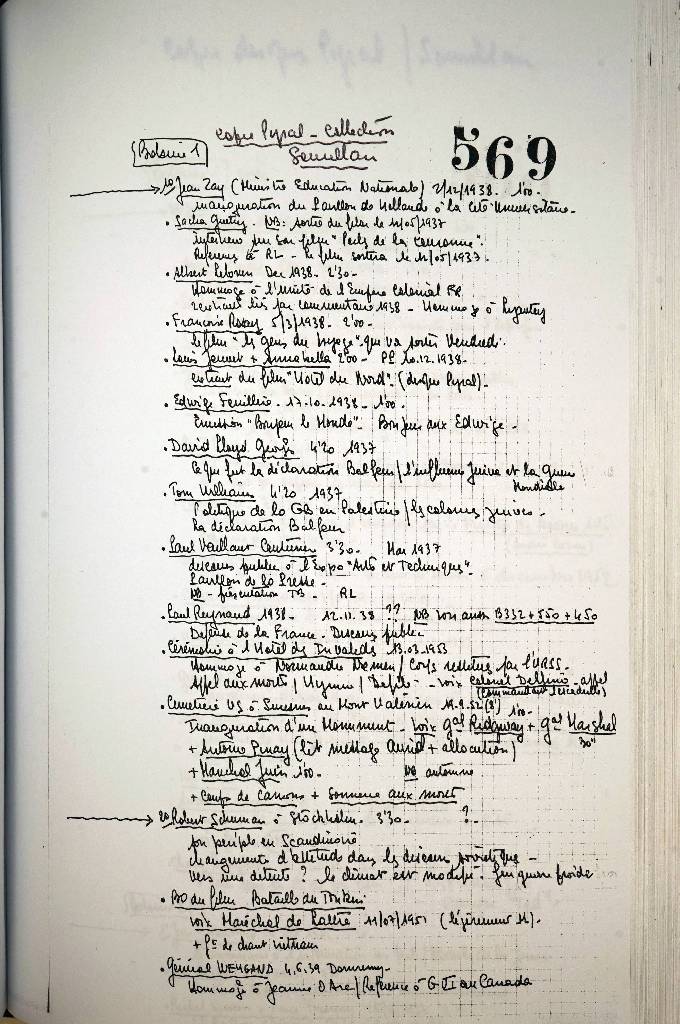 Copie Pyral - Collection
Bobine 1
Semellan
569
1º Jean Zay (Ministre Education Nationale) 2/12/1938. 1'00.
inauguration du Pavillon de Hollande à la Cité Universitaire.
. Sacha Guitry. NB: sortie du film le 11/05/1937
interview sur son film "Perles de la Couronne".
Référence à RL - le film sortira le 11/05/1937.
. Albert Lebrun Dec 1938. 2'30.
Hommage à l'Unité de l'Empire Colonial FR
par commentaire 1938 - Hommage à Lyautey
. Françoise Rosay 5/3/1938. 2'00.
le film "les gens du voyage" que va sortir Vendredi.
. Louis Jouvet + Annabella 2'00 - PP 10.12.1938.
extrait du film "Hotel du Nord". (disque Pyral).
. Edwige Feuillère. 17.10.1938. 1'00.
Emission "Bonjour le Monde". Bonjour aux Edwige.
. David Lloyd George 4'20 1937
Ce que fut la déclaration Balfour / l'influence Juive et la Guerre
Mondiale
. Tom Williams 4'20 1937
Politique de la GB en Palestine / les colonies juives.
La déclaration Balfour
. Paul Vaillant Couturier 3'30. Mai 1937
discours public à l'Expo "Arts et Techniques".
Pavillon de la Presse.
NB - présentation TB. RL
. Paul Reynaud 1938. 12.11.38 ?? NB voir aussi B332 + 550 + 450
Défense de la France. Discours public.
. Cérémonie à l'Hotel des Invalides 13.03.1953
Hommage à Normandie Niemen / Corps restitués par l'URSS.
Appel aux morts / Hymne / Défilé - voix Colonel Delfino - appel
(Commandant l'escadrille)
. Cimetière US à Suresnes au Mont Valérien 13.9.52 (8') 1'00.
Inauguration d'un Monument - voix gal Ridgway + gal Marshal
30"
+ Antoine Pinay (lit message Auriol + allocution)
+ Maréchal Juin 1'00. NB automne
+ Coups de canons + Sonnerie aux morts
2º Robert Schuman à Stockholm. 3'30. ?.
son périple en Scandinavie
changements d'attitude dans les discours soviétique -
vers une détente? le climat est modifié. fin guerre froide
. BO du film Bataille du Tonkin
voix Maréchal de Lattre 11/07/1951 (légèrement M).
+ fin de chant vietnam
. Général WEYGAND 4.6.39 Domremy.
Hommage à Jeanne D'Arc / Référence à G VI au Canada